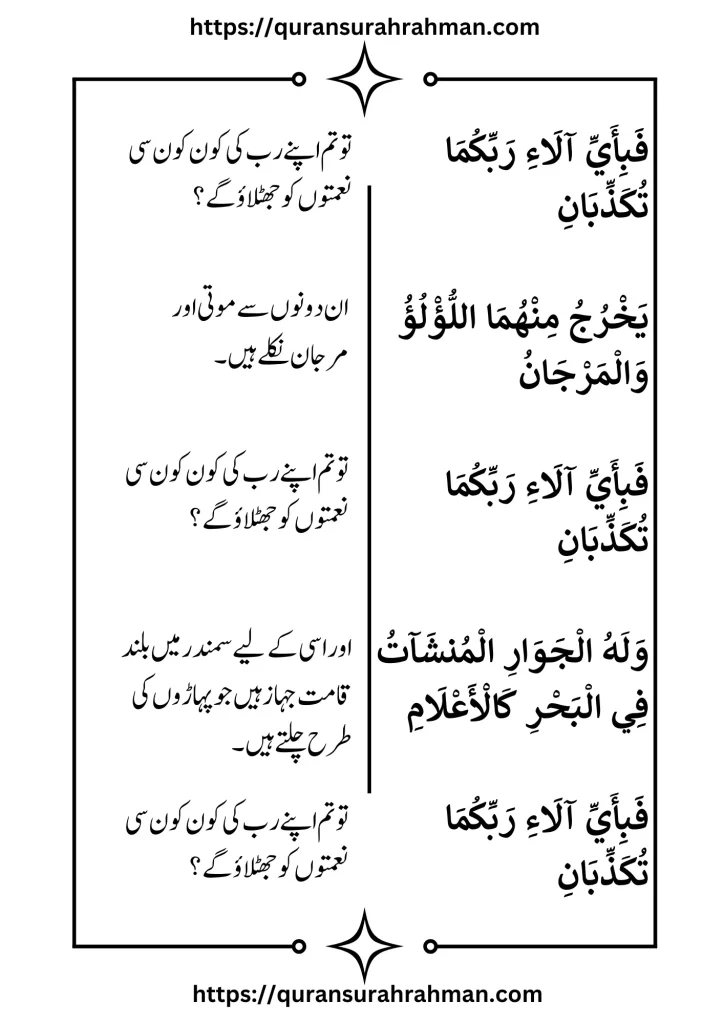 https://quransurahrahman.com
فَبِأَيِّ آلَاءِ رَبِّكُمَا
تُكَذِّبَانِ
تو تم اپنے رب کی کون کون سی
نعمتوں کو جھٹلاؤ گے ؟
يَخْرُجُ مِنْهُمَا اللُّؤْلُؤُ
وَالْمَرْجَانُ
ان دونوں سے موتی اور
مرجان نکلے ہیں۔
فَبِأَيِّ آلَاءِ رَبِّكُمَا
تُكَذِّبَانِ
تو تم اپنے رب کی کون کون سی
نعمتوں کو جھٹلاؤ گے ؟
وَلَهُ الْجَوَارِ الْمُنشَآتُ
فِي الْبَحْرِ كَالْأَعْلَامِ
اور اسی کے لیے سمندر میں بلند
قامت جہاز ہیں جو پہاڑوں کی
طرح چلتے ہیں۔
فَبِأَيِّ آلَاءِ رَبِّكُمَا
تُكَذِّبَانِ
تو تم اپنے رب کی کون کون سی
نعمتوں کو جھٹلاؤ گے ؟
https://quransurahrahman.com